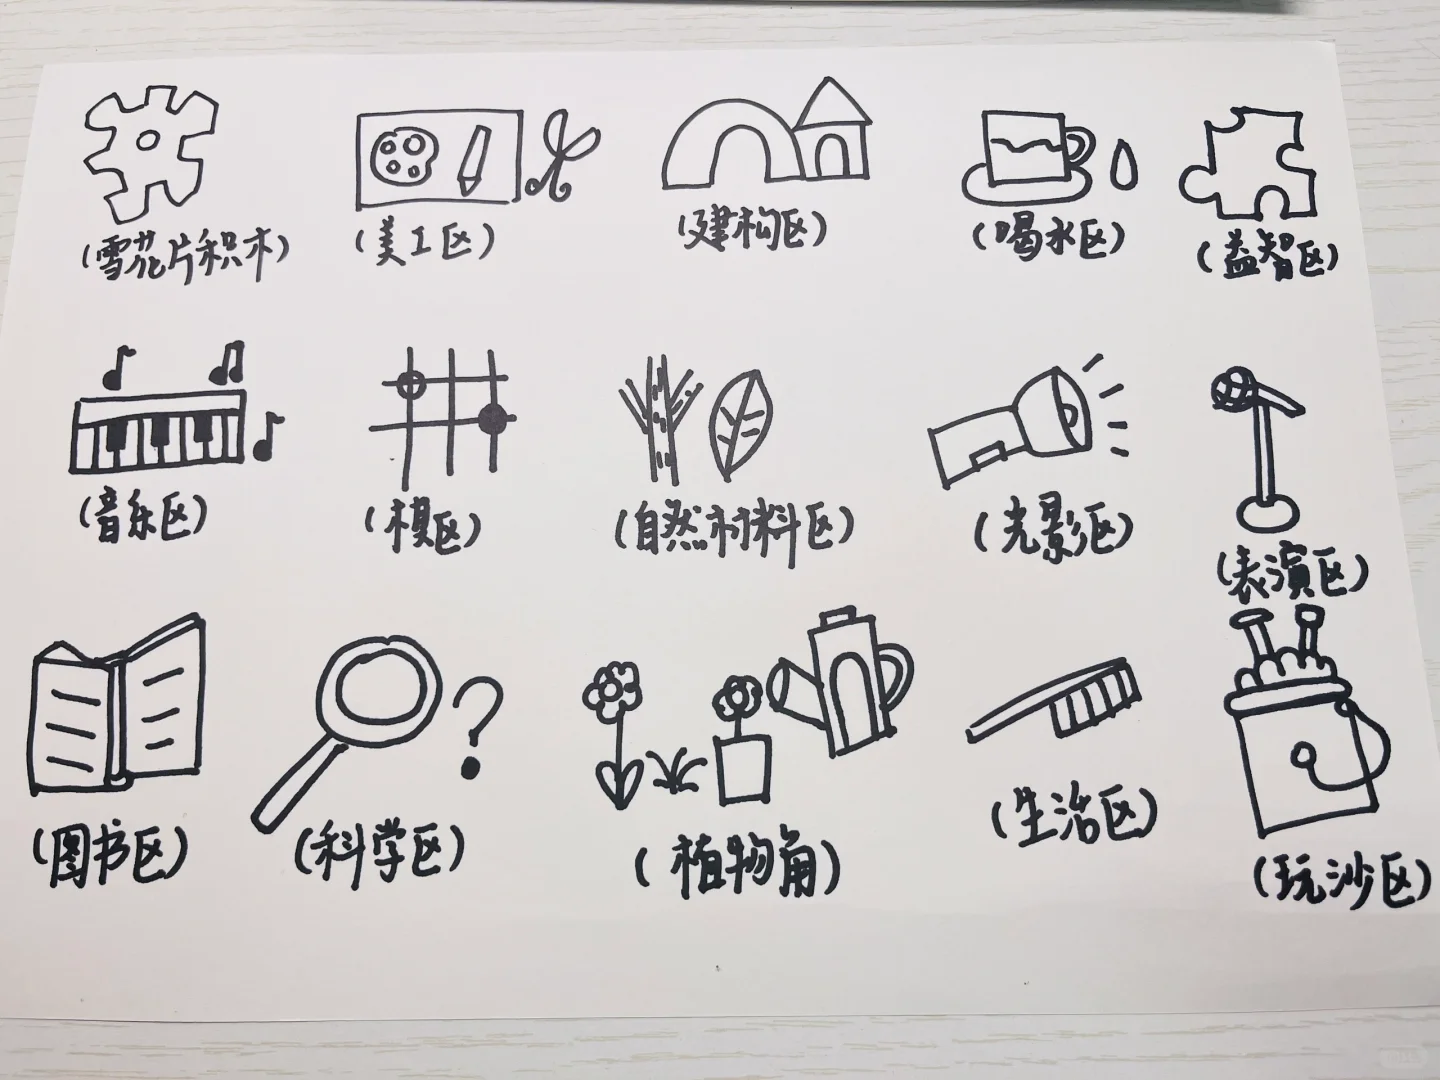 (雪花片积木)
(美工区)
(建构区)
(喝水区)
(益智区)
(音乐区)
(棋区)
(自然材料区)
(光影区)
(表演区)
(图书区)
(科学区)
(植物角)
(生活区)
(玩沙区)